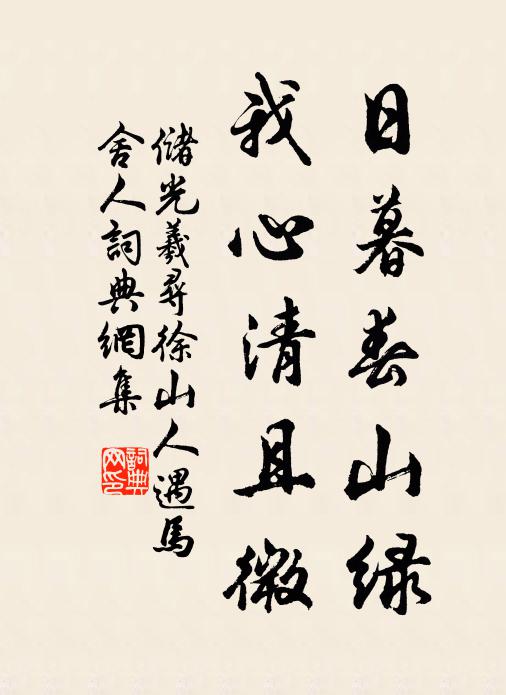 日暮春山綠
我心清且微
儲光羲尋徐山人遇馬
舍人詞典網集
詞典
网印